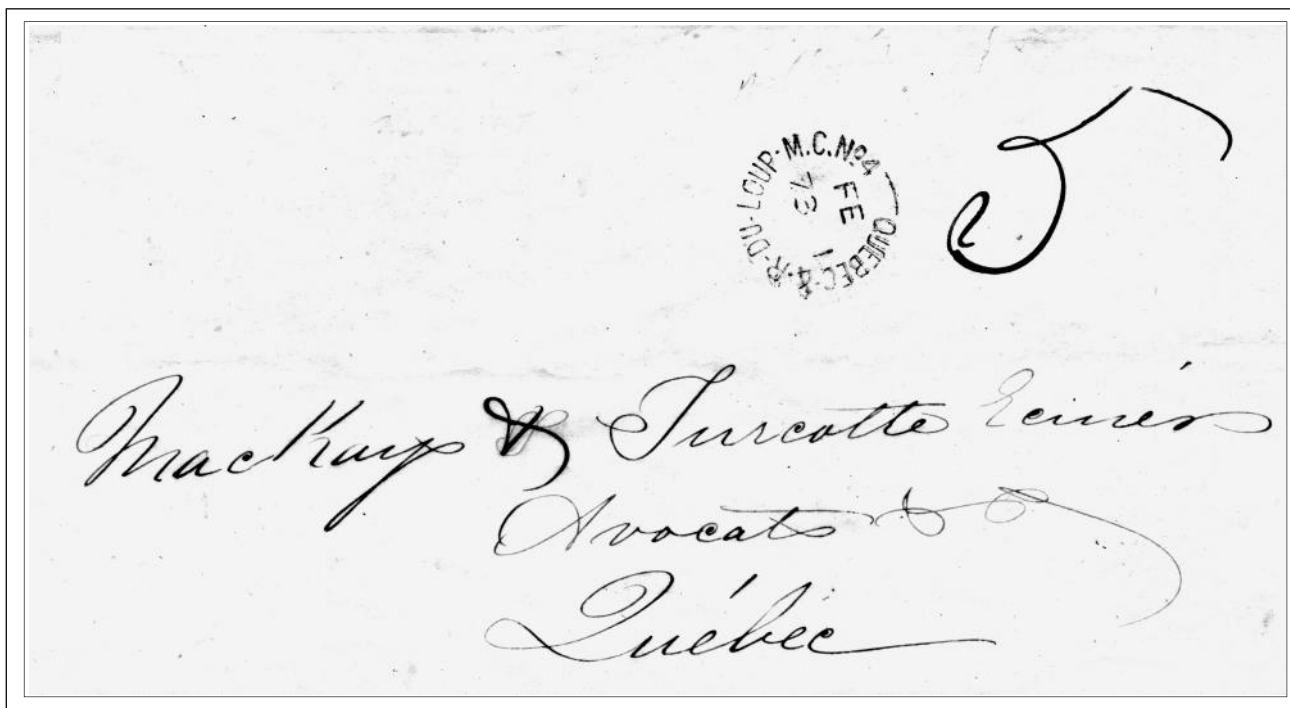 QUEBEC·&·R·DU·LOUP·M.C.Nº4
FE
5
MacKay & Turcotte Ecuiers
Avocats &
Québec